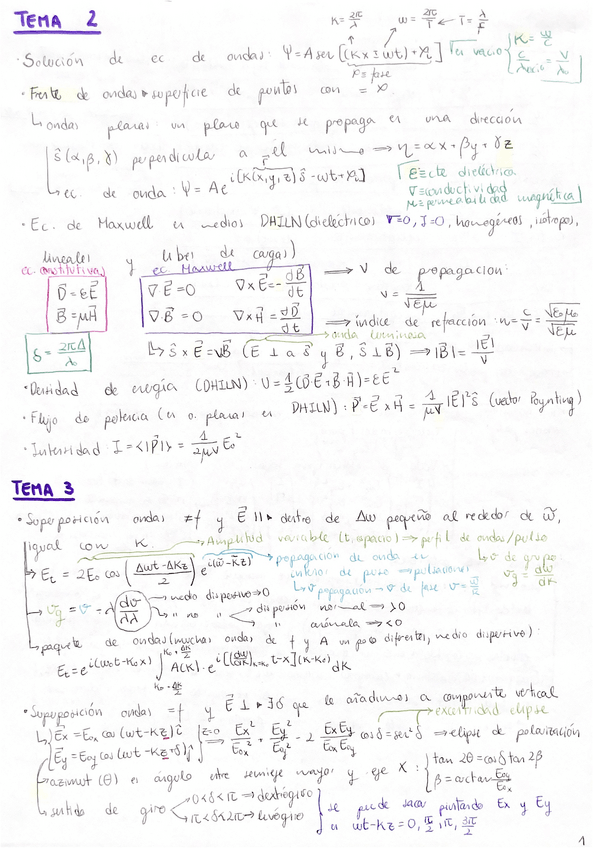 TEMA 2
K = 2π/λ   ω = 2π/T ← T = λ/
· Solución de ec de ondas: Ψ = A sen [(Kx ± ωt) + φ₁] en vacío { K = ω/c
φ = fase   c/λvacío = v/λ₀
· Frente de ondas → superficie de puntos con = φ
↳ ondas planas: un plano que se propaga en una dirección
ŝ(α,β,γ) perpendicular a él mismo ⇒ η = αx + βy + γz
↳ ec. de onda: Ψ = A e^{i[K(x,y,z)ŝ - ωt + φ₁]}   r⃗   ε ≡ cte dieléctrica
σ ≡ conductividad
μ ≡ permeabilidad magnética
· Ec. de Maxwell en medios DHILN (dieléctricos σ=0, J=0, homogéneos, isótropos,
lineales y libres de cargas)
ec. constitutivas   ec. Maxwell
D⃗ = εE⃗   ∇E⃗ = 0   ∇×E⃗ = -dB⃗/dt   ⇒ v de propagación:
B⃗ = μH⃗   ∇B⃗ = 0   ∇×H⃗ = dD⃗/dt   v = 1/√εμ
⇒ índice de refracción: n = c/v = √ε₀μ₀/√εμ
onda luminosa
δ = 2πΔ/λ₀   ↳ ŝ×E⃗ = vB⃗ (E ⊥ a ŝ y B⃗, ŝ ⊥ B⃗) ⇒ |B⃗| = |E⃗|/v
· Densidad de energía (DHILN): U = 1/2 (D⃗·E⃗ + B⃗·H⃗) = εE²
· Flujo de potencia (en o. planas en DHILN): P⃗ = E⃗×H⃗ = 1/μv |E|² ŝ (vector Poynting)
· Intensidad I = <|P⃗|> = 1/2μv E₀²
TEMA 3
· Superposición ondas ≠f y E⃗ || → dentro de Δω pequeño al rededor de ω̃,
igual con K   → Amplitud variable (t, espacio) ⇒ perfil de ondas/pulso
→ E_t = 2E₀ cos (Δωt - ΔKz / 2) e^{i(ω̃ - K̃z)} → propagación de onda en   ↳ v de grupo
interior de pulso → pulsaciones   v_g = dω/dK
↳ v propagación → v de fase: v = ω̃/K̃
→ v_g = v - λ dv/dλ → medio dispersivo ⇒ 0
↳ " no " → dispersión normal ⇒ >0
" anómala ⇒ <0
→ paquete de ondas (muchas ondas de f y A un poco diferentes, medio dispersivo):
E_t = e^{i(ω₀t - K₀x)} ∫_{K₀-ΔK/2}^{K₀+ΔK/2} A(K) · e^{i[(dω/dK)_{K=K₀} t - x](K-K₀)} dK
· Superposición ondas =f y E⃗ ⊥ → ∃δ que le añadimos a componente vertical
→ excentricidad elipse
↳ E⃗x = E₀x cos (ωt - Kz) î   z=0 ⇒ Ex²/E₀x² + Ey²/E₀y² - 2 ExEy/E₀xE₀y cosδ = sen²δ ⇒ elipse de polarización
E⃗y = E₀y cos (ωt - Kz + δ) ĵ
→ azimut (θ) es ángulo entre semieje mayor y eje X: { tan 2θ = cosδ tan 2β
β = arctan E₀y/E₀x
↳ sentido de giro   0<δ<π ⇒ dextrógiro   se puede sacar pintando Ex y Ey
π<δ<2π ⇒ levógiro   en ωt - Kz = 0, π/2, π, 3π/2
1